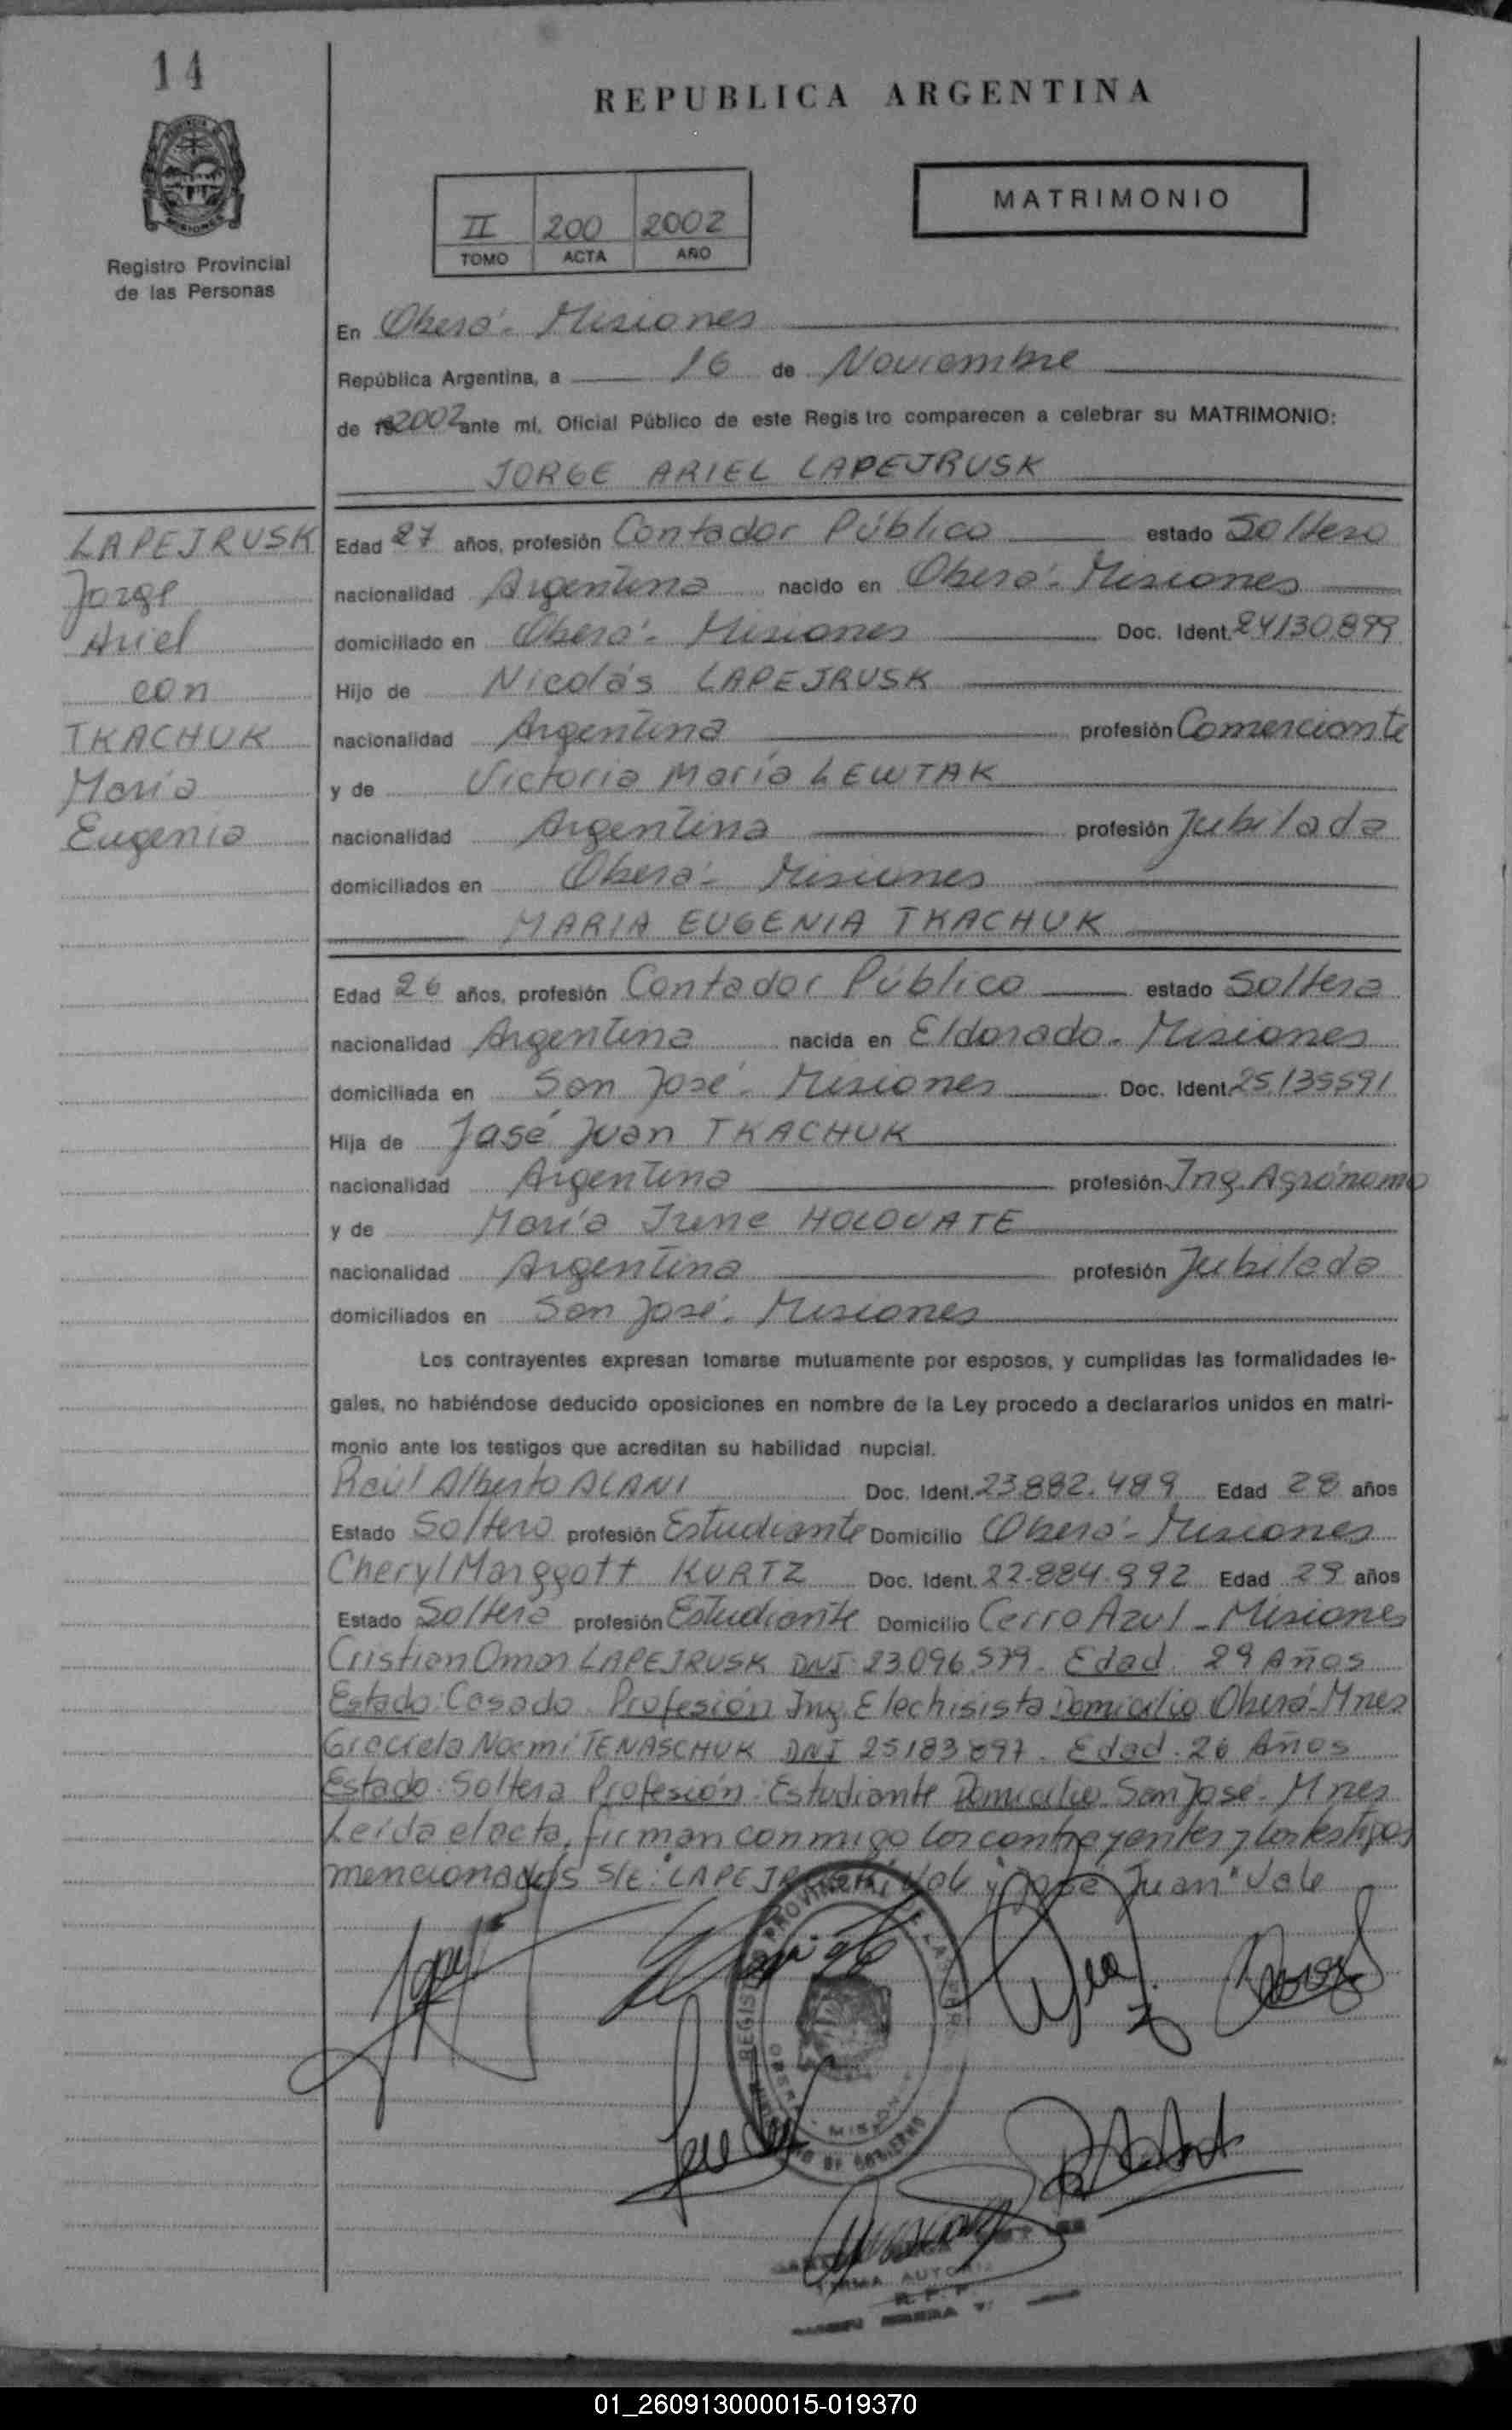 14
REPUBLICA ARGENTINA
MATRIMONIO
II 200 2002
TOMO ACTA AÑO
Registro Provincial
de las Personas
En Oberá - Misiones
República Argentina, a 16 de Noviembre
de 19 2002 ante mí, Oficial Público de este Registro comparecen a celebrar su MATRIMONIO:
JORGE ARIEL LAPEJRUSK
LAPEJRUSK
Jorge
Ariel
con
TKACHUK
María
Eugenia
Edad 27 años, profesión Contador Público estado Soltero
nacionalidad Argentina nacido en Oberá - Misiones
domiciliado en Oberá - Misiones Doc. Ident. 24130.899
Hijo de Nicolás LAPEJRUSK
nacionalidad Argentina profesión Comerciante
y de Victoria María LEWTAK
nacionalidad Argentina profesión Jubilada
domiciliados en Oberá - Misiones
MARIA EUGENIA TKACHUK
Edad 26 años, profesión Contador Público estado Soltera
nacionalidad Argentina nacida en Eldorado - Misiones
domiciliada en San José - Misiones Doc. Ident. 25.135591
Hija de José Juan TKACHUK
nacionalidad Argentina profesión Ing. Agrónomo
y de María Irene HOLOVATE
nacionalidad Argentina profesión Jubilada
domiciliados en San José - Misiones
Los contrayentes expresan tomarse mutuamente por esposos, y cumplidas las formalidades le-
gales, no habiéndose deducido oposiciones en nombre de la Ley procedo a declararlos unidos en matri-
monio ante los testigos que acreditan su habilidad nupcial.
Raúl Alberto ALANI Doc. Ident. 23.882.489 Edad 28 años
Estado Soltero profesión Estudiante Domicilio Oberá - Misiones
Cheryl Marggott KURTZ Doc. Ident. 22.884.992 Edad 29 años
Estado Soltera profesión Estudiante Domicilio Cerro Azul - Misiones
Cristian Omar LAPEJRUSK DNI 23096.579. Edad 29 Años
Estado: Casado. Profesión Ing. Electricista Domicilio Oberá - Mnes
Graciela Noemí TENASCHUK DNI 25183897. Edad. 26 Años
Estado: Soltera Profesión: Estudiante Domicilio San José - Mnes
Leída el acta, firman conmigo los contrayentes y los testigos
mencionados S/E: "LAPEJRUSK" Vale y "José Juan" Vale
REGISTRO PROVINCIAL DE LAS
01_260913000015-019370